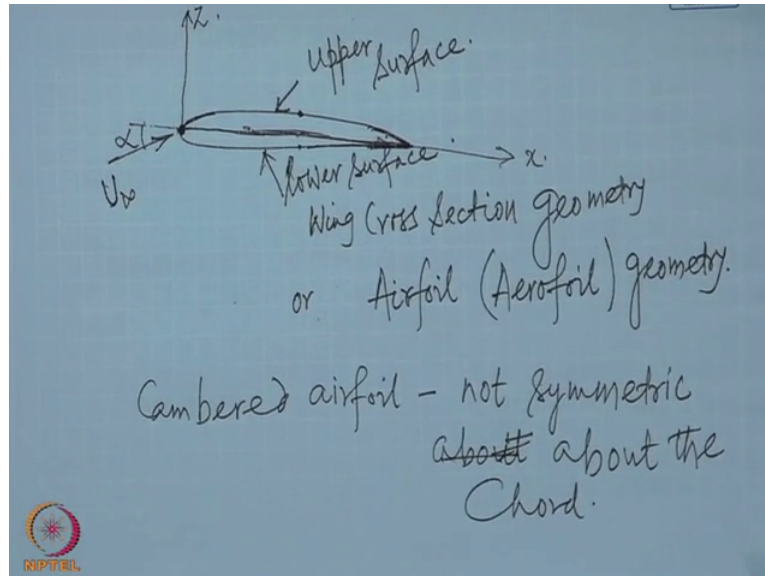 Z.
Upper Surface.
α
U∞
x.
Lower Surface.
Wing Cross Section Geometry
or Airfoil (Aerofoil) geometry.
Cambered airfoil - not Symmetric
about about the
Chord.
NPTEL